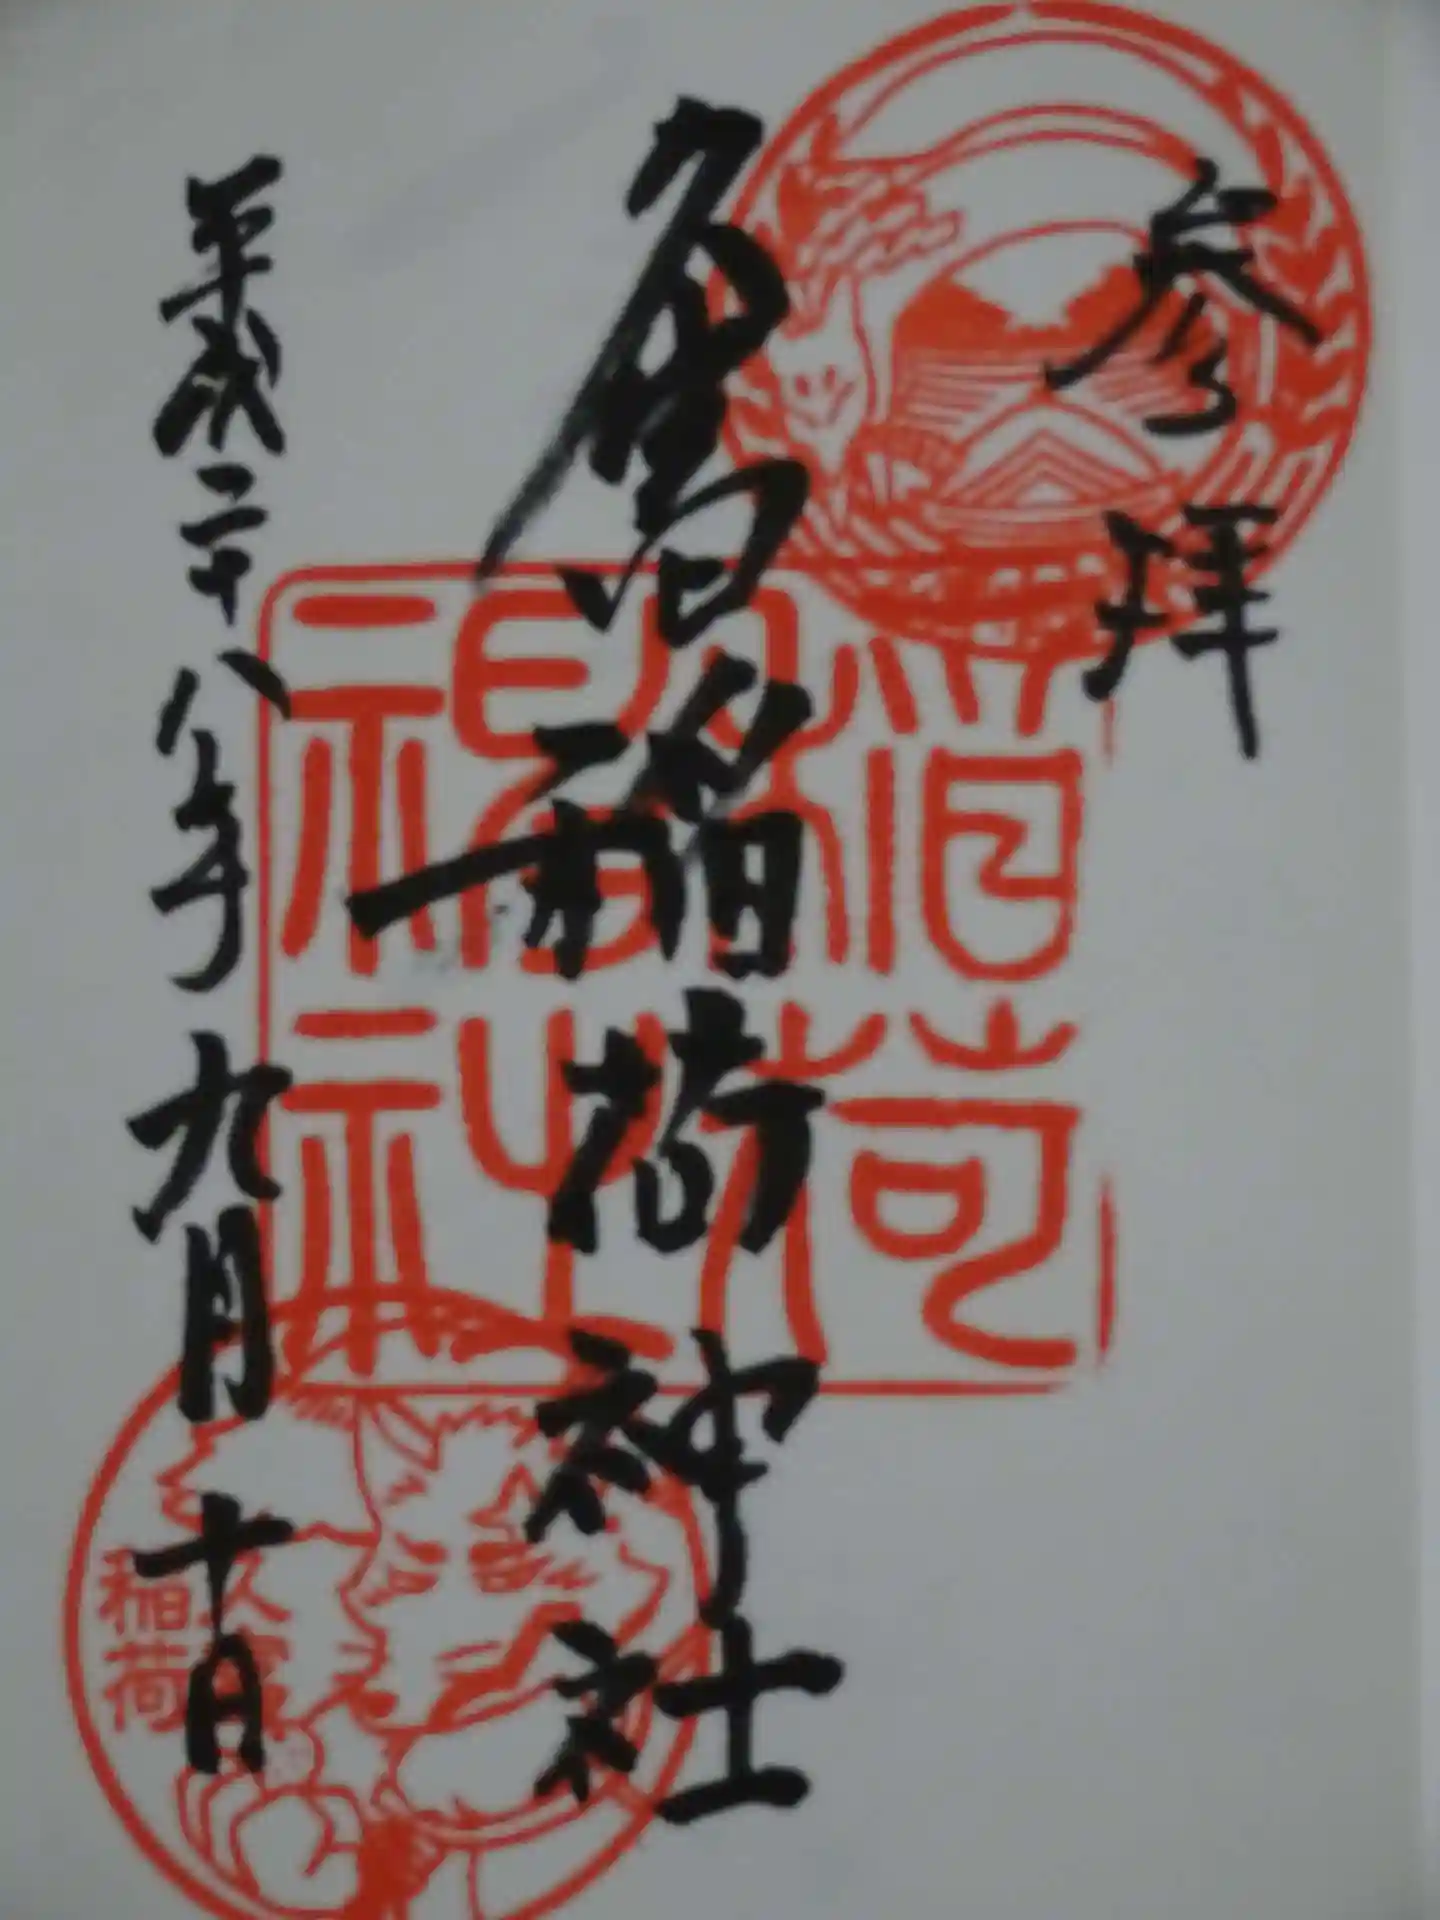 参拝
久富稲荷神社
稲荷
神社
平成二十八年九月十日
久富
稲荷